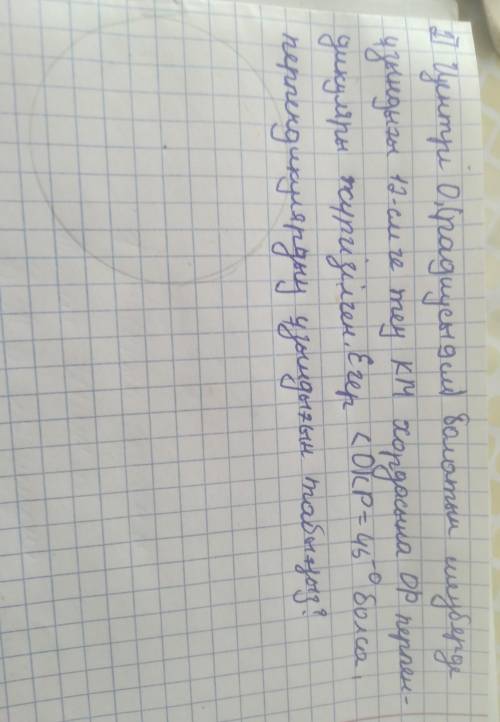 1) Центрі О, (радиусы 9см) болатын шеңберде
ұзындығы 12-см-ге тең КМ хордасына ОР перпен-
дикуляры жүргізілген. Егер <OKP = 45° болса,
перпендикулярдың ұзындығын табыңыз?